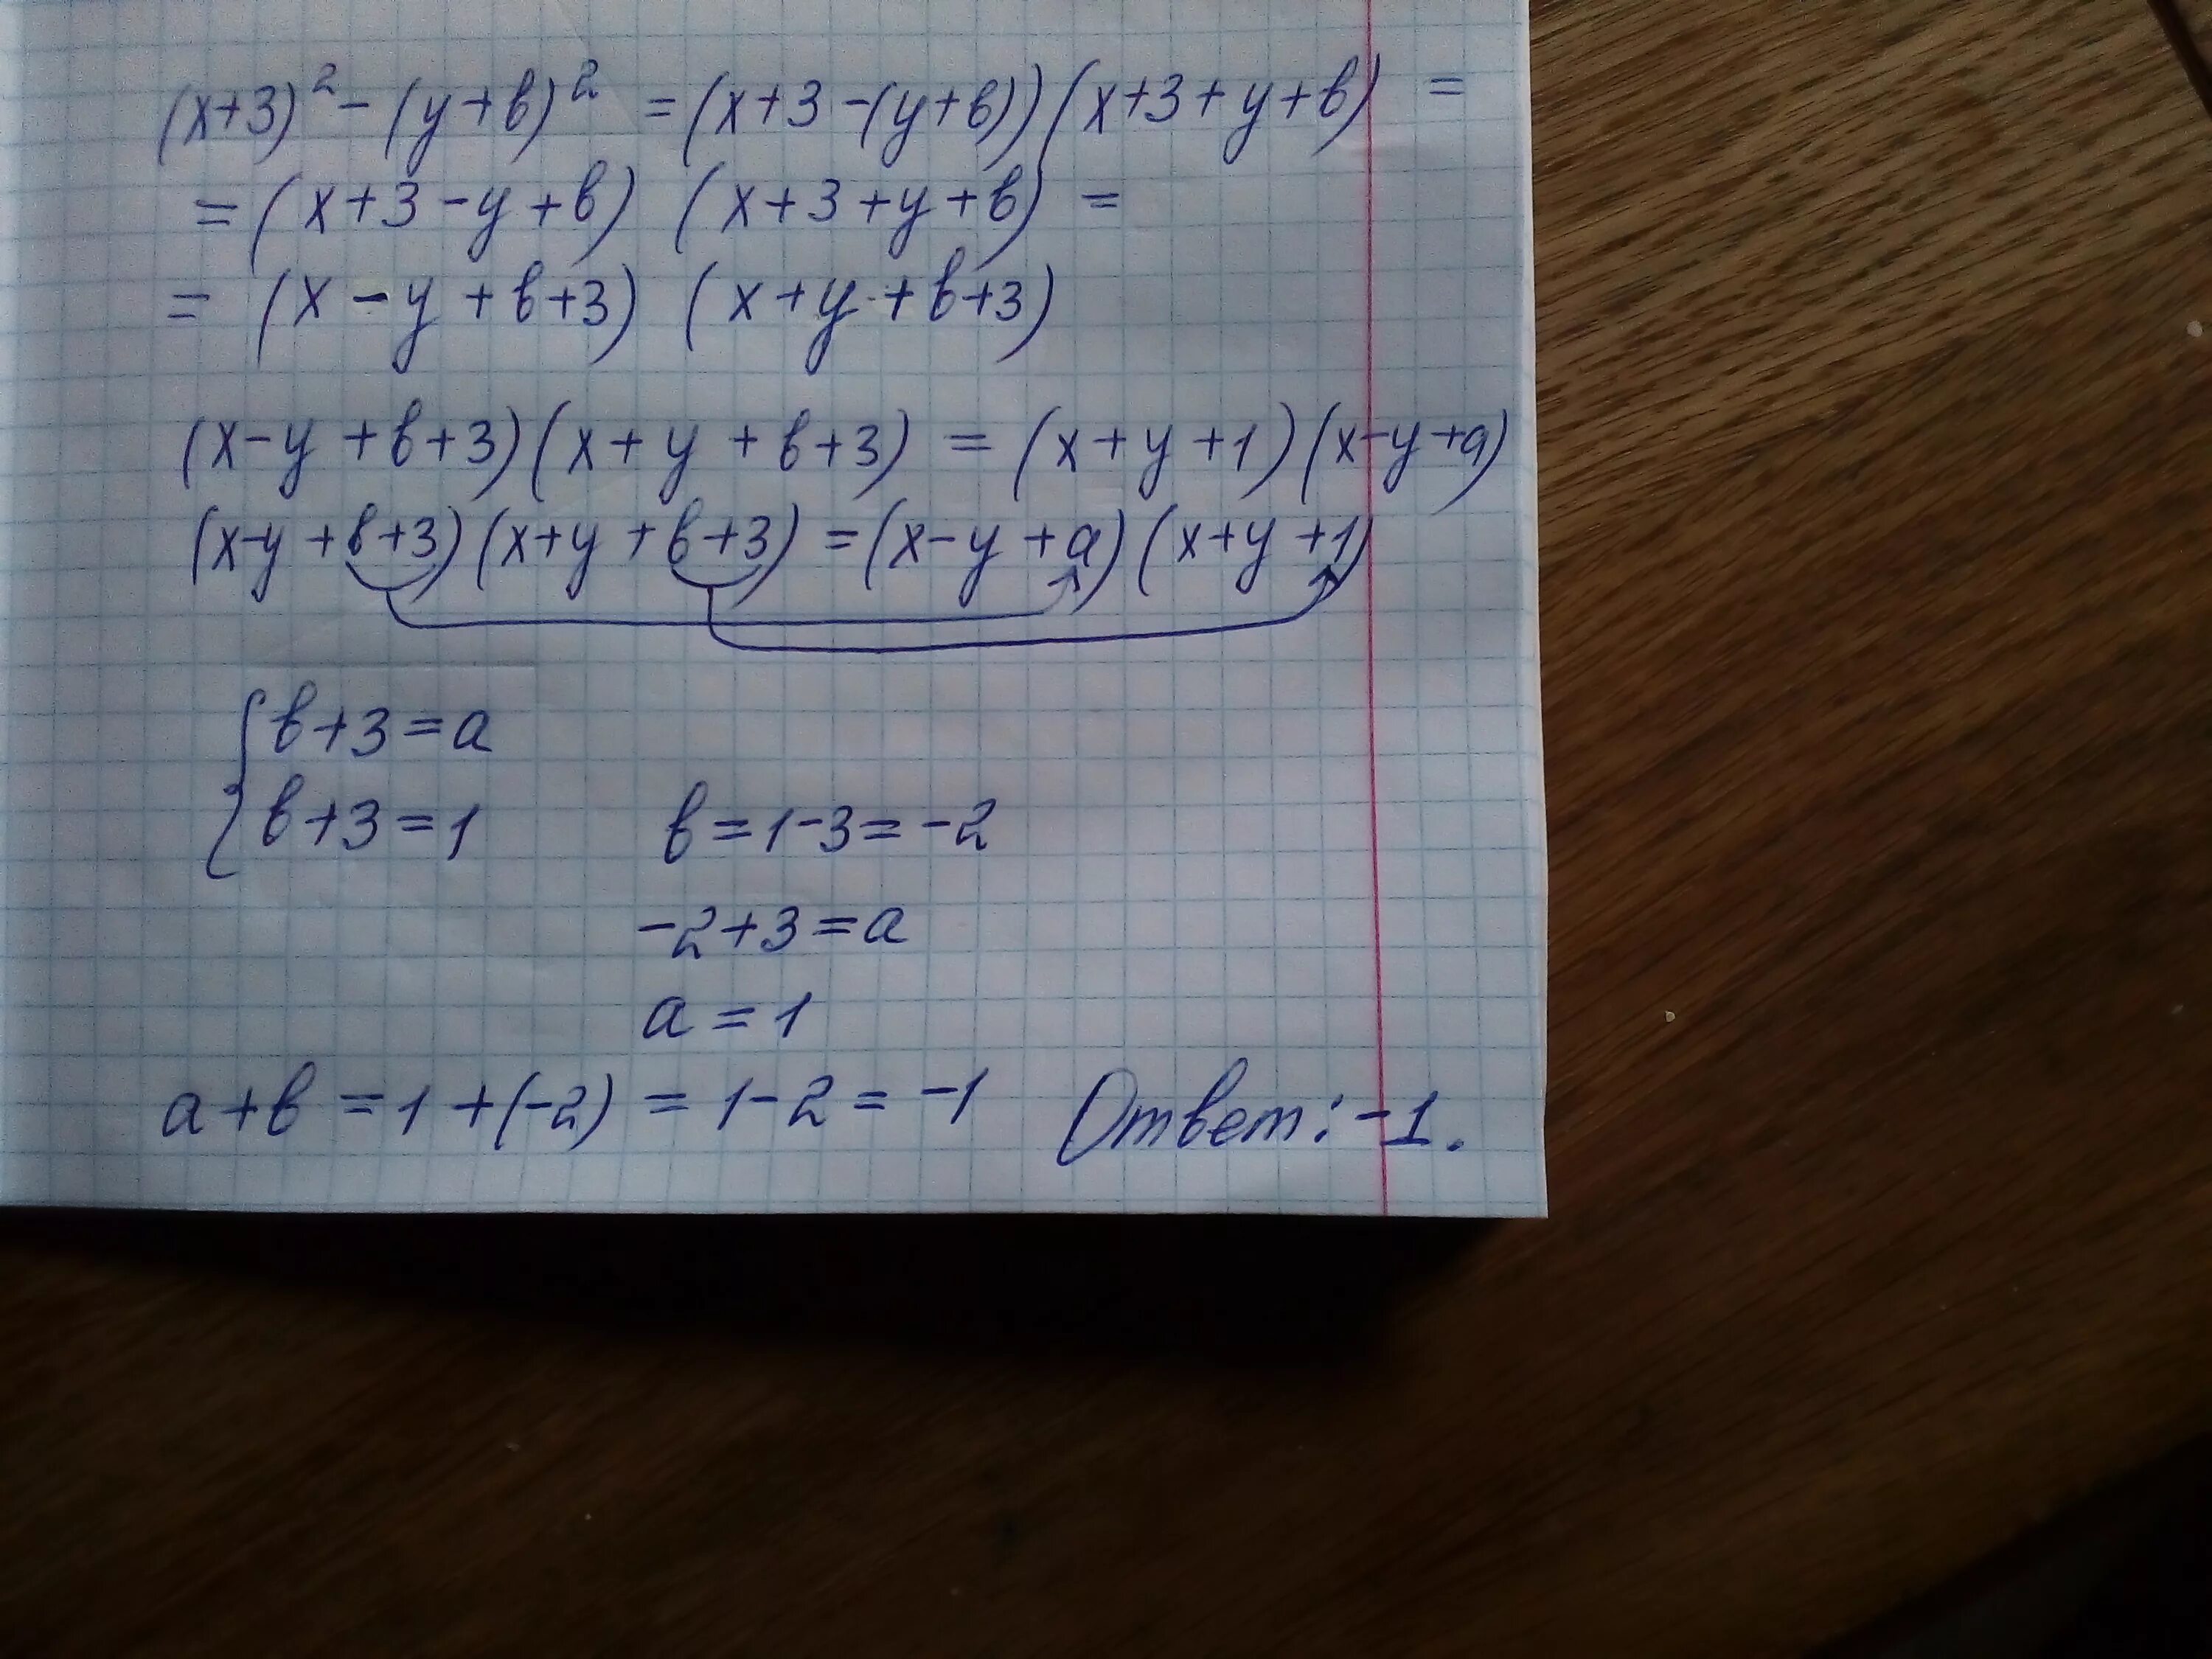 (x+3)² - (y+в)² = (x+3-(y+в))(x+3+y+в) =
= (x+3-y+в) (x+3+y+в) =
= (x-y+в+3) (x+y+в+3)
(x-y+в+3)(x+y+в+3) = (x+y+1)(x-y+a)
(x-y+в+3)(x+y+в+3) = (x-y+a)(x+y+1)
{ в+3=a
в+3=1 в=1-3=-2
-2+3=a
a=1
a+в=1+(-2)=1-2=-1 Ответ: -1.